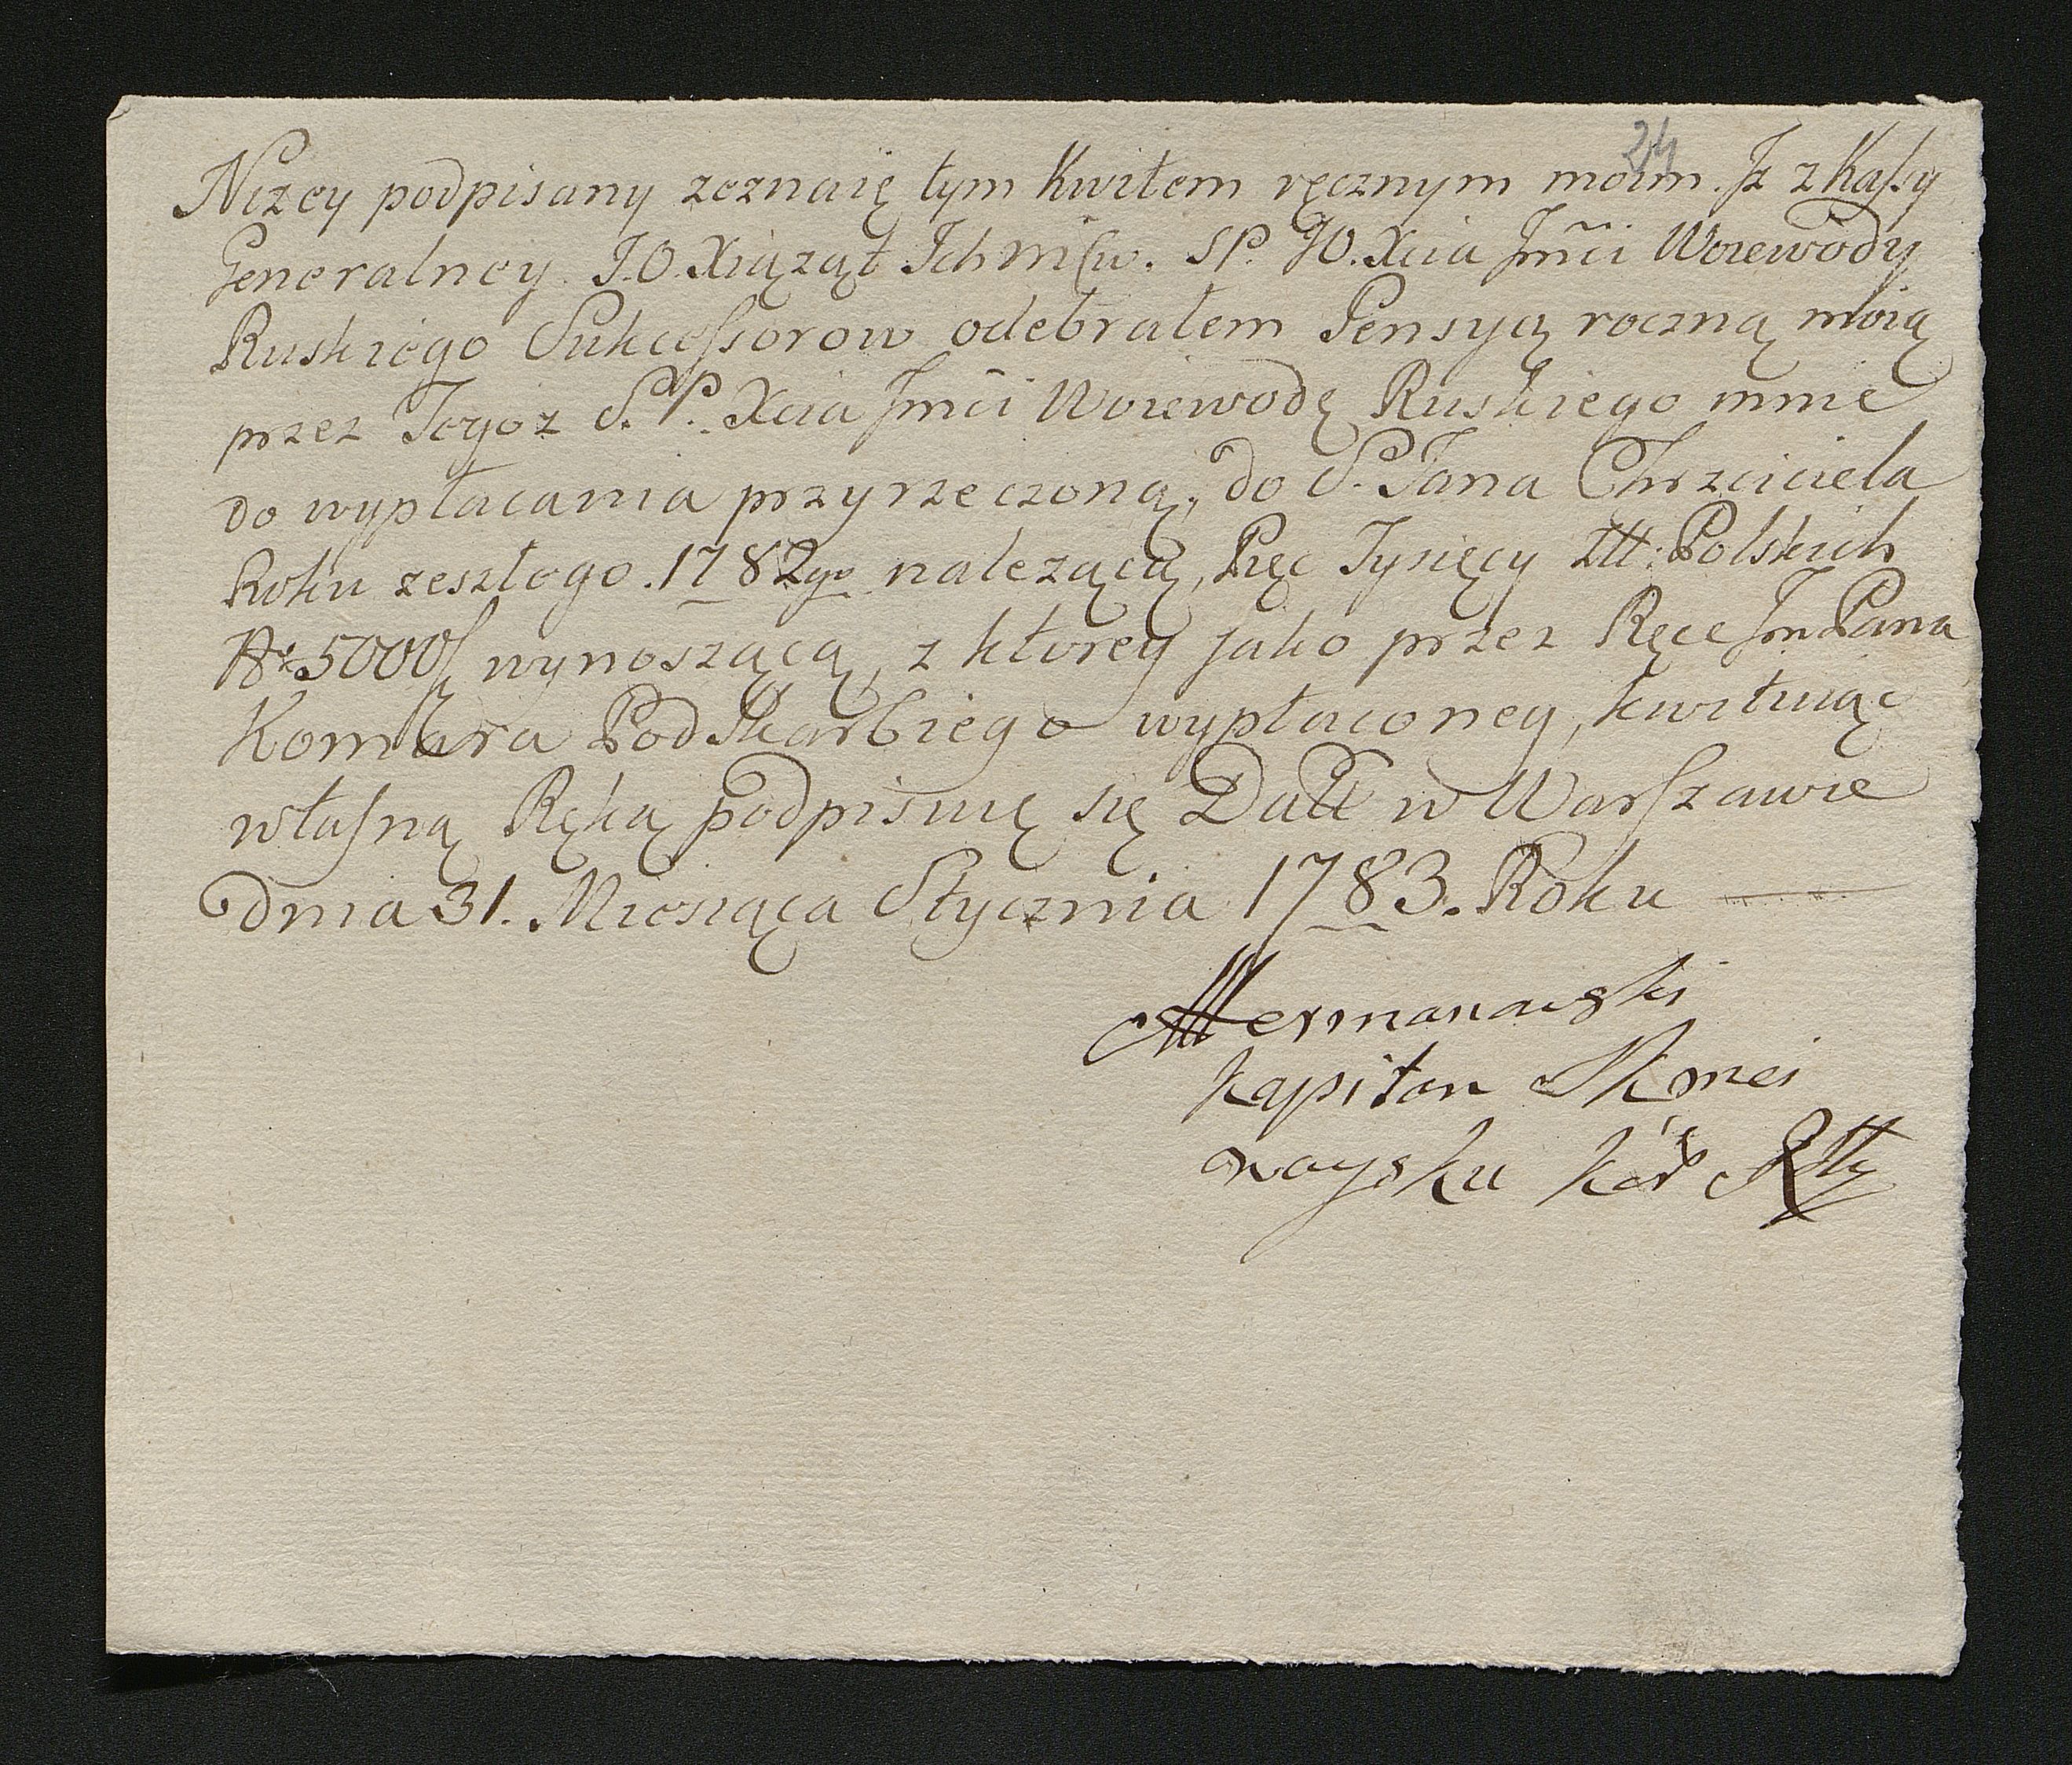 24
Niżey podpisany zeznaię tym Kwitem ręcznym moim. Jż z Kassy
Generalney J.O. Xiążąt Ich mśćiw. SP. JO. Xcia Jmći Woiewody
Ruskiego Sukcessorow odebrałem Pensyą roczną moią
przez Tegoż S.P. Xcia Jmći Woiewodę Ruskiego mnie
do wypłacania przyrzeczoną, do S. Jana Chrzciciela
Roku zeszłego. 1782go należącą, Pięc Tysięcy Złł: Polskich
Nr 5000 wynoszącą, z ktorey jako przez Ręce Jm Pana
Komara Podskarbiego wypłaconey, kwituiąc
własną Ręką podpisuię się Datt w Warszawie
dnia 31. Miesiąca Stycznia 1783. Roku
Hermanowski
kapitan
woysku